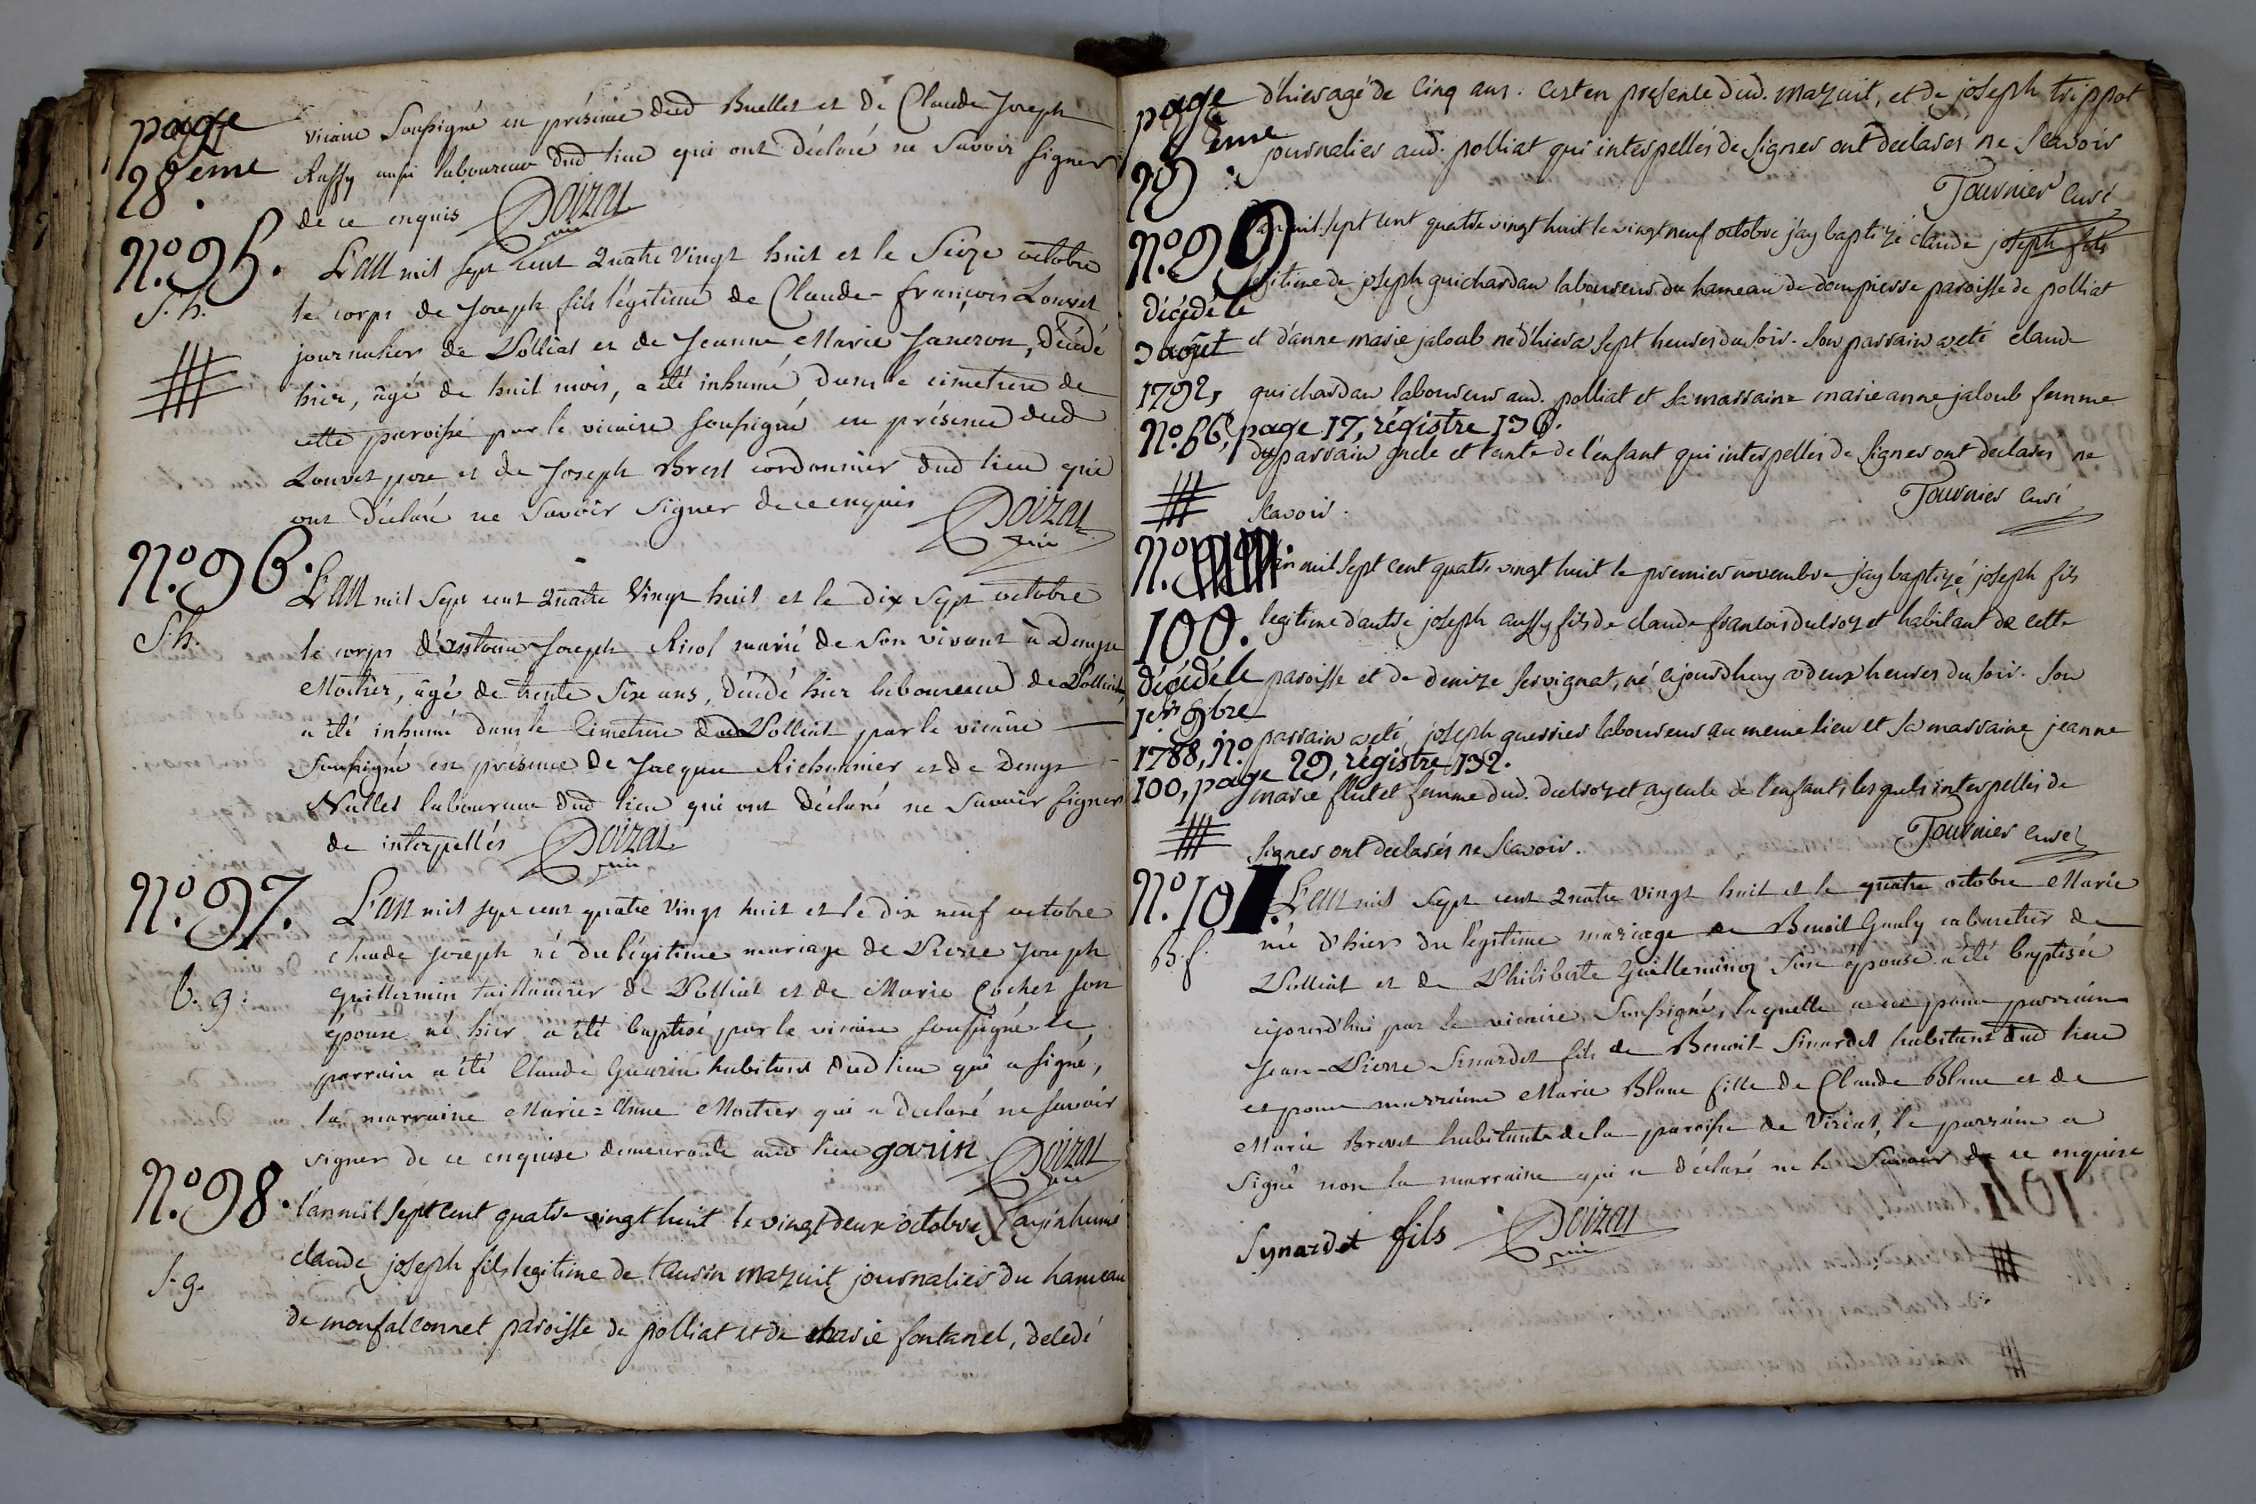 page
28eme
vicaire soussigné en présence dud Buellet et de Claude Joseph
Ruffy aussi laboureur dud lieu qui ont déclaré ne savoir signer
de ce enquis Doizat
vic
N.o 95.
S. h.
L'an mil sept cent quatre vingt huit et le seize octobre
le corps de Joseph fils légitime de Claude-françois Louvet
journalier de Polliat et de Jeanne Marie Janeron, décédé
hier, âgé de huit mois, a été inhumé dans le cimetiere de
cette paroisse par le vicaire soussigné en présence dud
Louvet pere et de Joseph Brest cordonnier dud lieu qui
ont déclaré ne savoir signer de ce enquis Doizat
vic
N.o 96.
S.h.
L'an mil sept cent quatre vingt huit et le dix sept octobre
le corps d'antoine Joseph Ricol marié de son vivant à Denyse
Mochier, âgé de trente six ans, décédé hier laboureur de Polliat,
a été inhumé dans le cimetiere dud Polliat par le vicaire
soussigné en présence de Jacque Richonnier et de Denys
Nallet laboureur dud lieu qui ont déclaré ne savoir signer
de interpellés Doizat
vic
N.o 97.
b. g.
L'an mil sept cent quatre vingt huit et le dix neuf octobre
claude joseph né du légitime mariage de Pierre Joseph
guillermin taillandier de Polliat et de Marie Cochet son
épouse né hier a été baptisé par le vicaire soussigné le
parrain a été Claude Guarin habitant dud lieu qui a signé,
la marraine Marie=Anne Mortier qui a declaré ne savoir
signer de ce enquise demeurante aud lieu gavin Doizat
vic
N.o 98.
S. g.
l'an mil sept cent quatre vingt huit le vingt deux octobre j'ay inhumé
claude joseph fils legitime de taurin mazuit journalier du hameau
de monfalconnet paroisse de polliat et de marie fontanel, decedé
page
29eme
d'hier agé de cinq ans. c'est en presence dud. mazuit, et de joseph trippot
journalier aud. polliat qui interpellés de signer ont declarés ne scavoir
Tournier curé
N.o 99
l'an mil sept cent quatre vingt huit le vingt neuf octobre j'ay baptizé claude joseph fils
legitime de joseph guichardan laboureur du hameau de dompierre paroisse de polliat
et d'anne marie jaloub né d'hier a sept heures du soir. son parrain a eté claude
guichardan laboureur aud. polliat et sa marraine marie anne jaloub femme
du parrain oncle et tante de l'enfant qui interpellés de signer ont declarés ne
scavoir.
Tournier curé
décédé le
3 août
1792,
N.o 66, page 17, régistre 136.
N.o
100.
l'an mil sept cent quatre vingt huit le premier novembre j'ay baptizé joseph fils
legitime d'autre joseph aussy fils de claude francois duvoy et habitant de cette
paroisse et de denize servignat, né aujourdhuy a deux heures du soir. son
parrain a eté joseph guerrier laboureur au meme lieu et sa marraine jeanne
marie flutet femme dud. duvoy et ayeule de l'enfant, lesquels interpellés de
signer ont declarés ne scavoir.
Tournier curé
décédé le
1er 9bre
1788, N.o
100, page 29, régistre 132.
N.o 101.
B. f.
L'an mil sept cent quatre vingt huit et le quatre octobre Marie
née d'hier du légitime mariage de Benoit Gauly cabaretier de
Polliat et de Philiberte Guilleminot son épouse a été baptisée
aujourd'hui par le vicaire soussigné, laquelle a eu pour parrain
Jean-Pierre Sinardet fils de Benoit Sinardet habitant dud lieu
et pour marraine Marie Blanc fille de Claude Blanc et de
Marie Brevet habitante de la paroisse de Viriat, le parrain a
signé non la marraine qui a déclaré ne le savoir de ce enquise
Synardet fils Doizat
vic